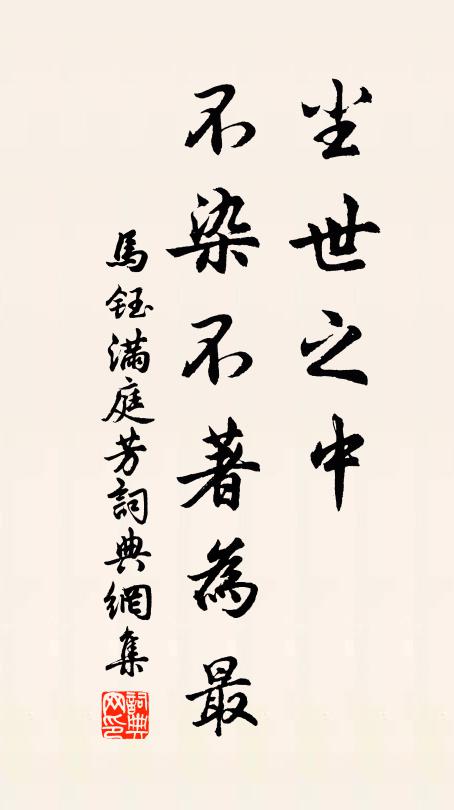 尘世之中
不染不著為最
馬鈺滿庭芳詞典網集
詞典
网印